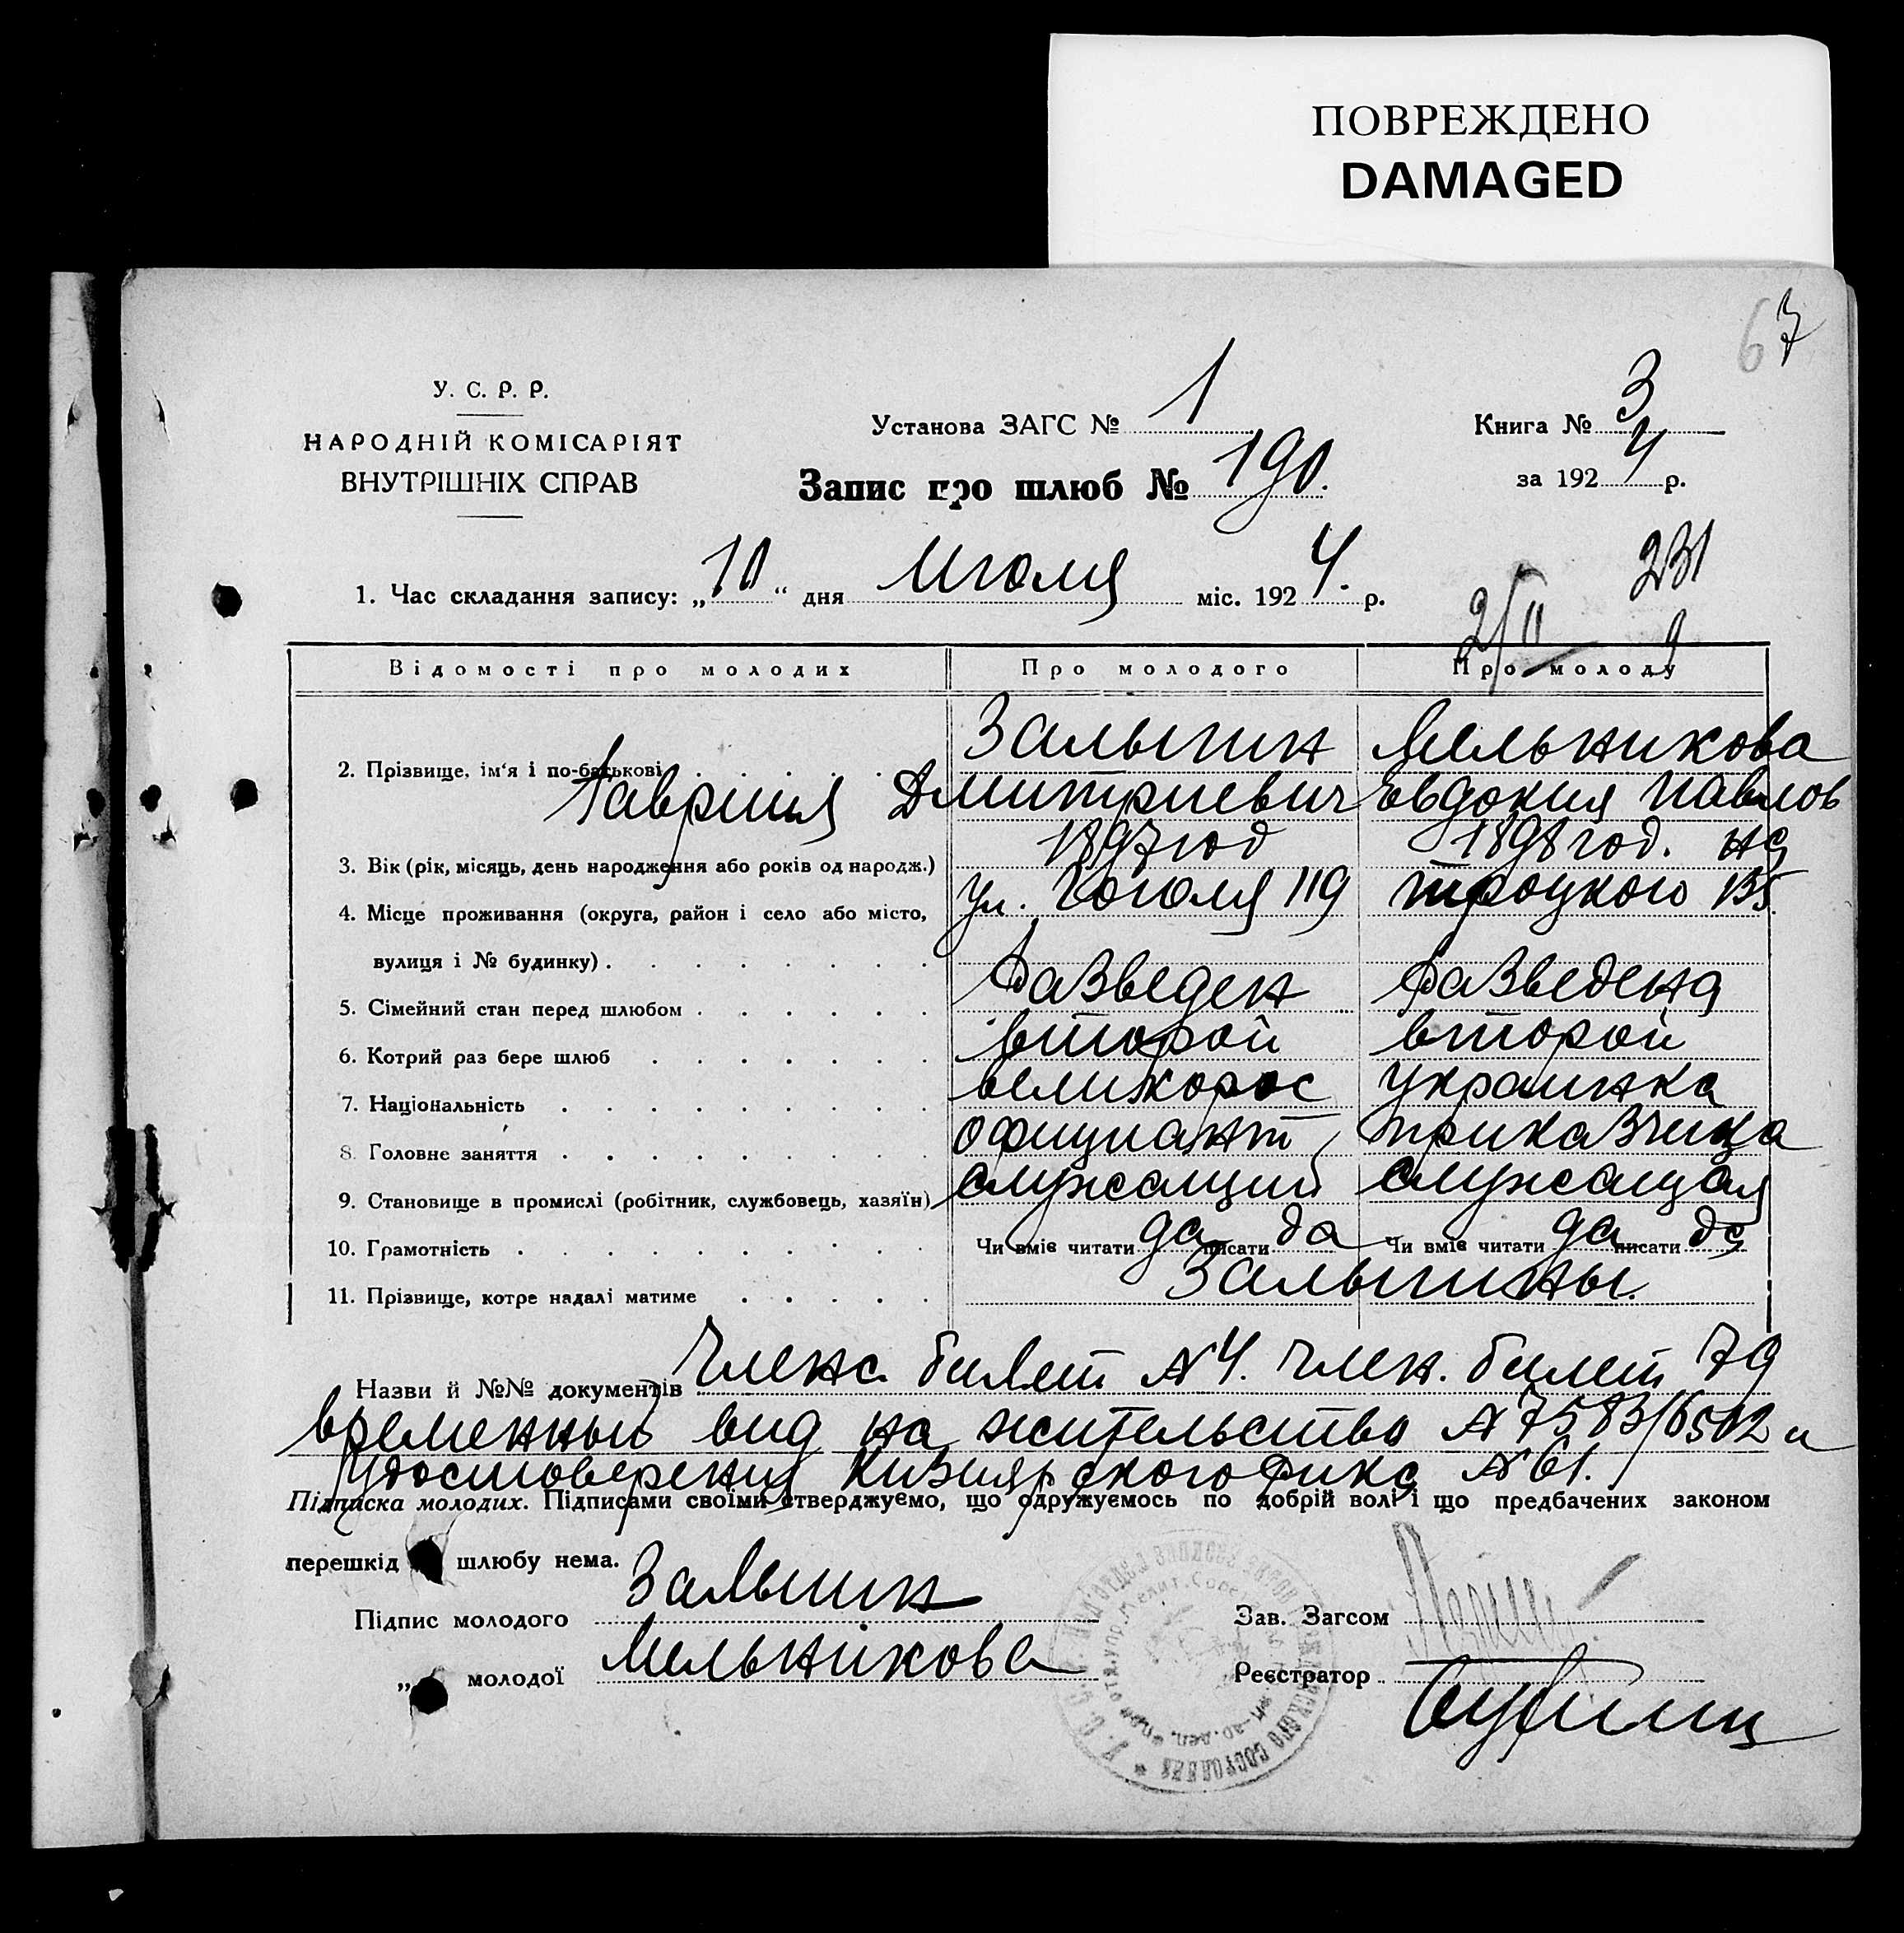 ПОВРЕЖДЕНО
DAMAGED
67
У. С. Р. Р.
НАРОДНІЙ КОМІСАРІЯТ
ВНУТРІШНІХ СПРАВ
Установа ЗАГС № 1
Книга № 3
за 1924 р.
Запис про шлюб № 190.
1. Час складання запису: „10“ дня Июля міс. 1924. р.
231
9
Відомості про молодих
Про молодого
Про молоду
2. Прізвище, ім‘я і по-батькові Залыгин Мельникова
Гавриил Дмитриевич Евдокия Павлов
на
3. Вік (рік, місяць, день народження або років од народж.) 1897 год 1898 год.
4. Місце проживання (округа, район і село або місто, ул. Гоголя 119 Троцкого 135
вулиця і № будинку)
5. Сімейний стан перед шлюбом разведен разведена
6. Котрий раз бере шлюб второй второй
7. Національність великорос украинка
8. Головне заняття официант приказчица
9. Становище в промислі (робітник, службовець, хазяїн) служащий служащая
10. Грамотність Чи вміє читати да писати да Чи вміє читати да писати да
11. Прізвище, котре надалі матиме Залыгины.
Назви й №№ документів Членс. билет №4. член. билет 79
временный вид на жительство № 7583/6502 и
удостоверения Кизиярского Рика № 61.
Підписка молодих. Підписами своїми стверджуємо, що одружуємось по добрій волі і що предбачених законом
перешкід шлюбу нема.
Підпис молодого Залыгин
Зав. Загсом
„ молодої Мельникова
Реєстратор